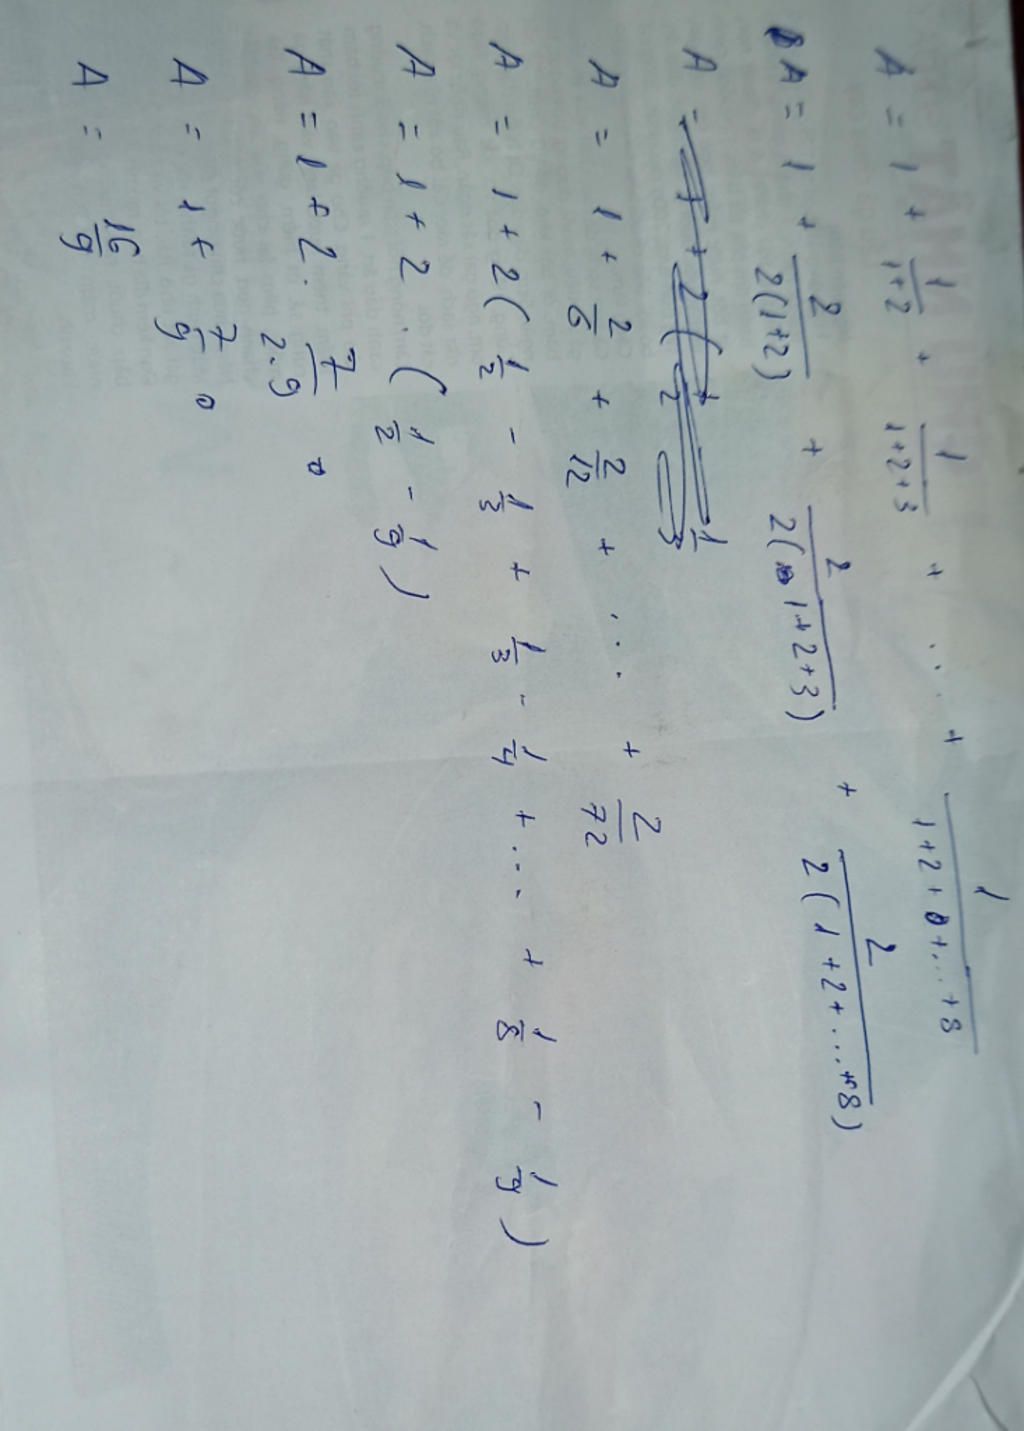 A = 1 + 1/(1+2) + 1/(1+2+3) + ... + 1/(1+2+0+...+8)
A = 1 + 2/(2(1+2)) + 2/(2(1+2+3)) + 2/(2(1+2+...+8))
A = 1 + 2(1/2 - 1/3
A = 1 + 2/6 + 2/12 + ... + 2/72
A = 1 + 2(1/2 - 1/3 + 1/3 - 1/4 + ... + 1/8 - 1/9)
A = 1 + 2 . (1/2 - 1/9)
A = 1 + 2 . 7/(2.9)
A = 1 + 7/9
A = 16/9